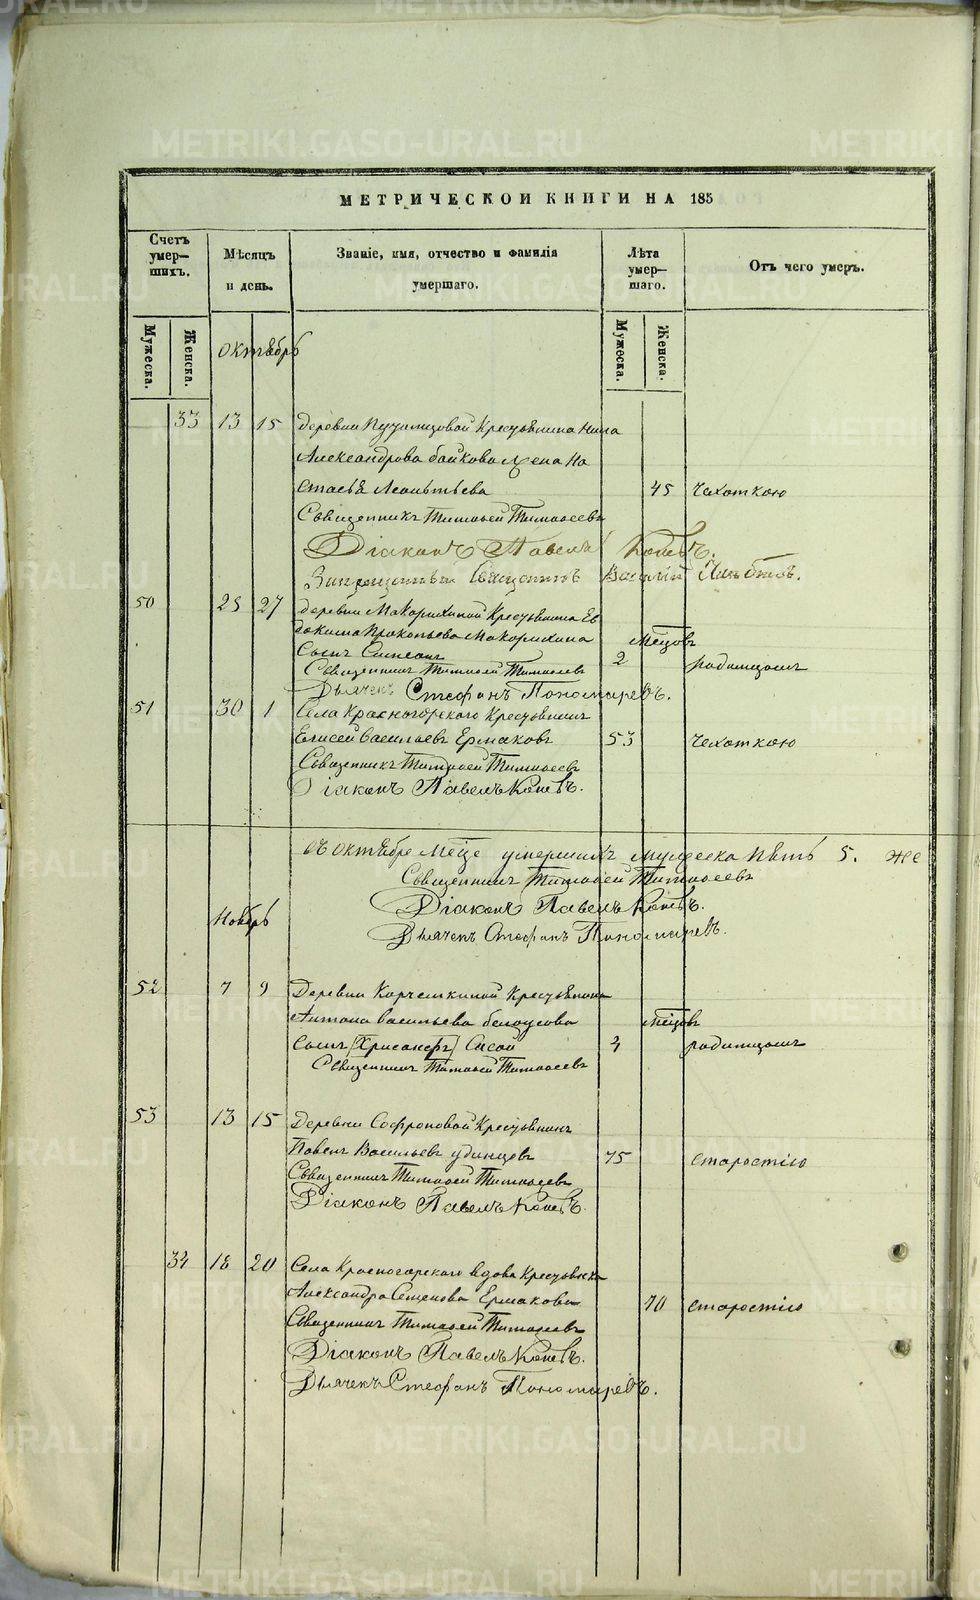 МЕТРИЧЕСКОЙ КНИГИ НА 185
Счетъ умер-шихъ.
Мѣсяцъ и день.
Званіе, имя, отчество и фамилія умершаго.
Лѣта умер-шаго.
Отъ чего умеръ.
Мужеска.
Женска.
Мужеска.
Женска.
Октябрь
33 13 15 деревни Крестьянина Нила
Александрова байкова жена На
стасья Леонтьева 45 чахоткою
Священникъ Тимофей Тимофеевъ
Діаконъ Павелъ
Священникъ Василій
50 25 27 деревни Макарихиной Крестьянина Ев
докима Прокопьева Макарихина мѣсцовъ
сынъ Симеонъ 2 родимцомъ
Священникъ Тимофей Тимофеевъ
Дьячекъ Стефанъ Пономаревъ.
51 30 1 Села Красногорского Крестьянинъ
Елисей Васильевъ Ермаковъ 53 чехоткою
Священникъ Тимофей Тимофеевъ
Діаконъ Павелъ
Въ Октябре Мсце умершихъ мужеска пять 5. же
Священникъ Тимофей Тимофеевъ
Діаконъ Павелъ
Ноябрь
Дьячекъ Стефанъ Пономаревъ.
52 7 9 Деревни Корчемкиной Крестьянина
Антона Васильева белоусова мѣсцовъ
сынъ [Хрисанфъ] 4 родимцомъ
Священникъ Тимофей Тимофеевъ
53 13 15 Деревни Софроновой Крестьянинъ
Павелъ Васильевъ удинцовъ 75 старостію
Священникъ Тимофей Тимофеевъ
Діаконъ Павелъ
34 18 20 Села Красногорского вдова Крестьянка
Александра Семенова Ермакова 70 старостію
Священникъ Тимофей Тимофеевъ
Діаконъ Павелъ
Дьячекъ Стефанъ Пономаревъ.
METRIKI.GASO-URAL.RU